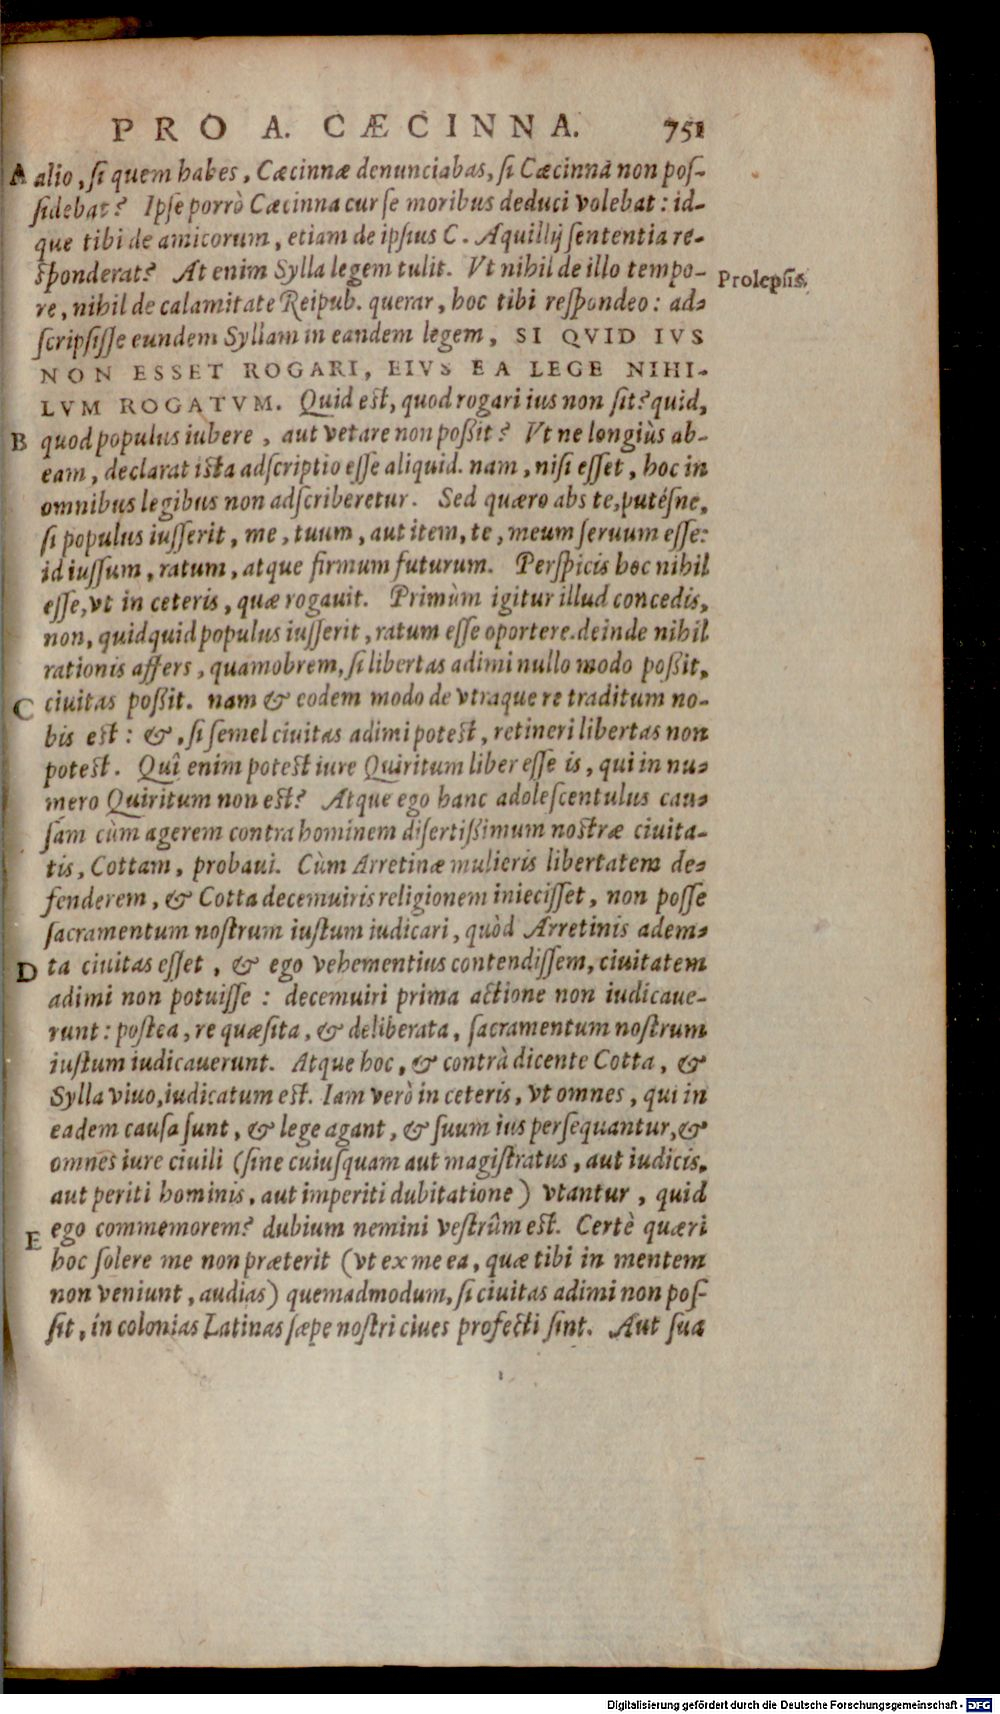 PRO A. CÆCINNA. 751
A alio, si quem habes, Cæcinnæ denunciabas, si Cæcinna non pos-
sidebat? Ipse porrò Cæcinna cur se moribus deduci volebat: id-
que tibi de amicorum, etiam de ipsius C. Aquillij sententia re-
sponderat? At enim Sylla legem tulit. Vt nihil de illo tempo-
Prolepsis.
re, nihil de calamitate Reipub. querar, hoc tibi respondeo: ad-
scripsisse eundem Syllam in eandem legem, SI QVID IVS
NON ESSET ROGARI, EIVS EA LEGE NIHI-
LVM ROGATVM. Quid est, quod rogari ius non sit? quid,
B quod populus iubere, aut vetare non poßit? Vt ne longiùs ab-
eam, declarat ista adscriptio esse aliquid. nam, nisi esset, hoc in
omnibus legibus non adscriberetur. Sed quæro abs te, putésne,
si populus iusserit, me, tuum, aut item, te, meum seruum esse:
id iussum, ratum, atque firmum futurum. Perspicis hoc nihil
esse, vt in ceteris, quæ rogauit. Primùm igitur illud concedis,
non, quidquid populus iusserit, ratum esse oportere. deinde nihil
rationis affers, quamobrem, si libertas adimi nullo modo poßit,
C ciuitas poßit. nam & eodem modo de vtraque re traditum no-
bis est: &, si semel ciuitas adimi potest, retineri libertas non
potest. Quî enim potest iure Quiritum liber esse is, qui in nu-
mero Quiritum non est? Atque ego hanc adolescentulus cau-
sam cùm agerem contra hominem disertißimum nostræ ciuita-
tis, Cottam, probaui. Cùm Arretinæ mulieris libertatem de-
fenderem, & Cotta decemuiris religionem iniecisset, non posse
sacramentum nostrum iustum iudicari, quòd Arretinis adem-
D ta ciuitas esset, & ego vehementius contendissem, ciuitatem
adimi non potuisse: decemuiri prima actione non iudicaue-
runt: postea, re quæsita, & deliberata, sacramentum nostrum
iustum iudicauerunt. Atque hoc, & contrà dicente Cotta, &
Sylla viuo, iudicatum est. Iam verò in ceteris, vt omnes, qui in
eadem causa sunt, & lege agant, & suum ius persequantur, &
omnes iure ciuili (sine cuiusquam aut magistratus, aut iudicis,
aut periti hominis, aut imperiti dubitatione) vtantur, quid
E ego commemorem? dubium nemini vestrûm est. Certè quæri
hoc solere me non præterit (vt ex me ea, quæ tibi in mentem
non veniunt, audias) quemadmodum, si ciuitas adimi non pos-
sit, in colonias Latinas sæpe nostri ciues profecti sint. Aut sua
Digitalisierung gefördert durch die Deutsche Forschungsgemeinschaft - DFG